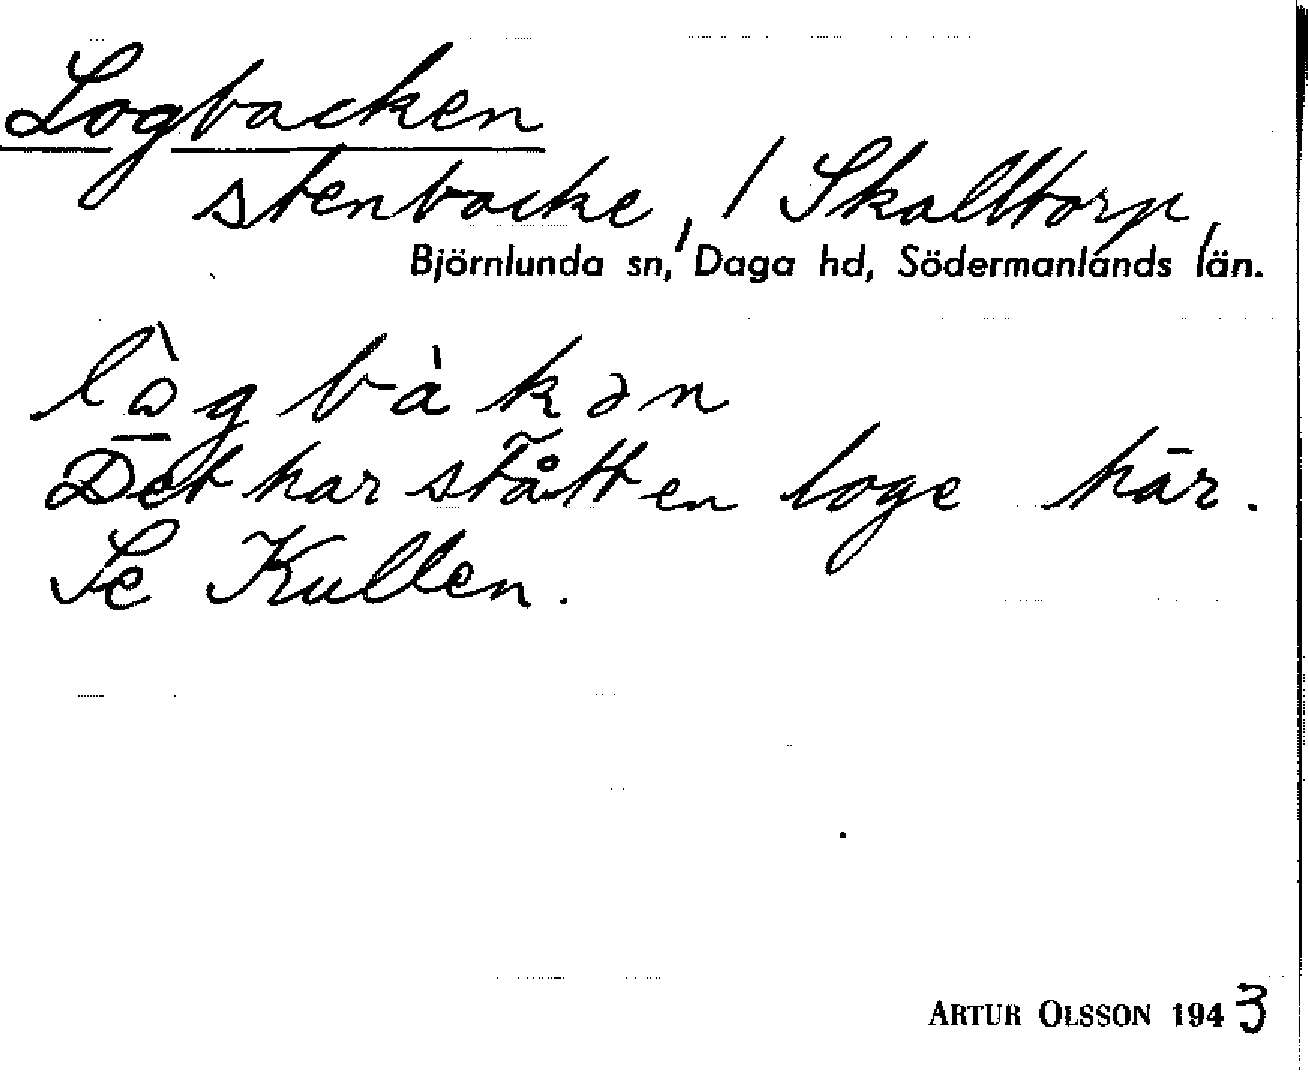 Logbacken
stenbacke, / Skalltorp,
Björnlunda sn, Daga hd, Södermanlands län.
lɷ̂g bàkən
Det har stått en loge här.
Se Kullen.
ARTUR OLSSON 1943